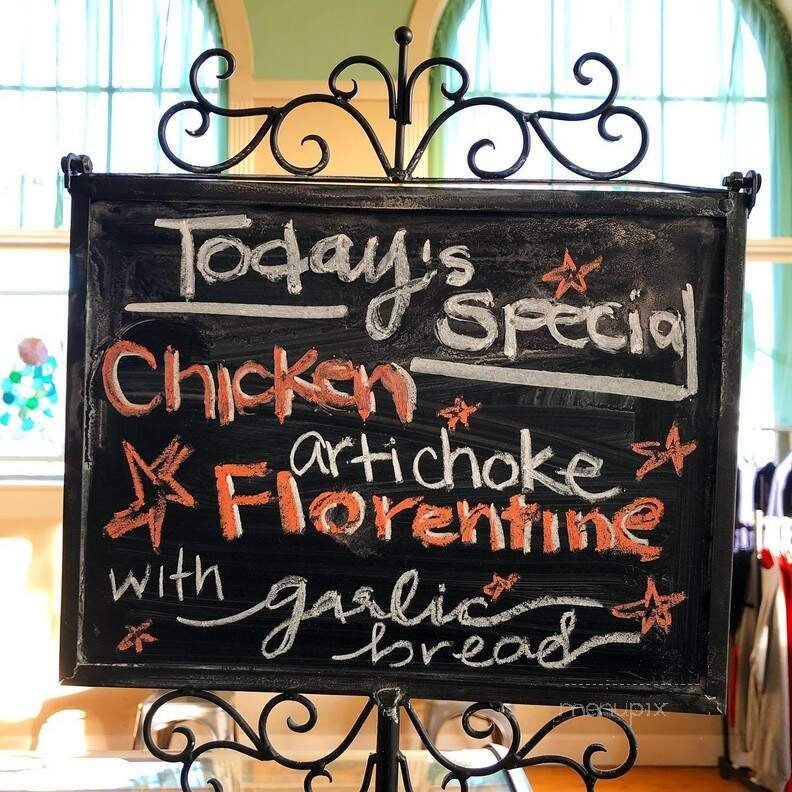 Today's
Special
Chicken
artichoke
Florentine
with garlic
bread
menupix